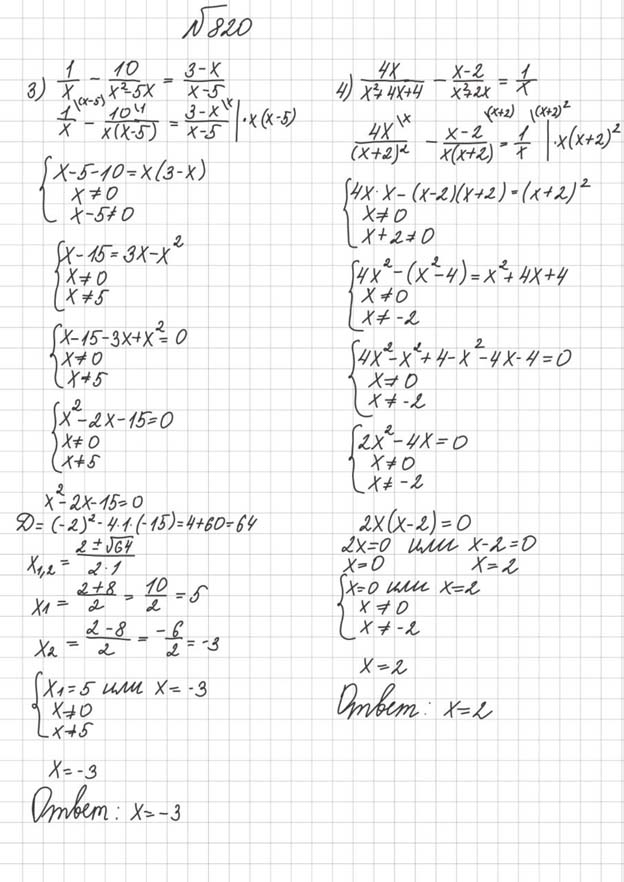 №820
3) 1/x - 10/(x²-5x) = (3-x)/(x-5)
1/x \(x-5) - 10/(x(x-5)) \1 = (3-x)/(x-5) \x | ·x(x-5)
{ x-5-10=x(3-x)
x≠0
x-5≠0
{ x-15=3x-x²
x≠0
x≠5
{ x-15-3x+x²=0
x≠0
x≠5
{ x²-2x-15=0
x≠0
x≠5
x²-2x-15=0
D=(-2)²-4·1·(-15)=4+60=64
x₁,₂ = (2±√64)/(2·1)
x₁ = (2+8)/2 = 10/2 = 5
x₂ = (2-8)/2 = -6/2 = -3
{ x₁=5 или x=-3
x≠0
x≠5
x=-3
Ответ: x=-3
4) 4x/(x²+4x+4) - (x-2)/(x²+2x) = 1/x
4x/(x+2)² \x - (x-2)/(x(x+2)) \(x+2) = 1/x \(x+2)² | ·x(x+2)²
{ 4x·x-(x-2)(x+2)=(x+2)²
x≠0
x+2≠0
{ 4x²-(x²-4)=x²+4x+4
x≠0
x≠-2
{ 4x²-x²+4-x²-4x-4=0
x≠0
x≠-2
{ 2x²-4x=0
x≠0
x≠-2
2x(x-2)=0
2x=0 или x-2=0
x=0 x=2
{ x=0 или x=2
x≠0
x≠-2
x=2
Ответ: x=2